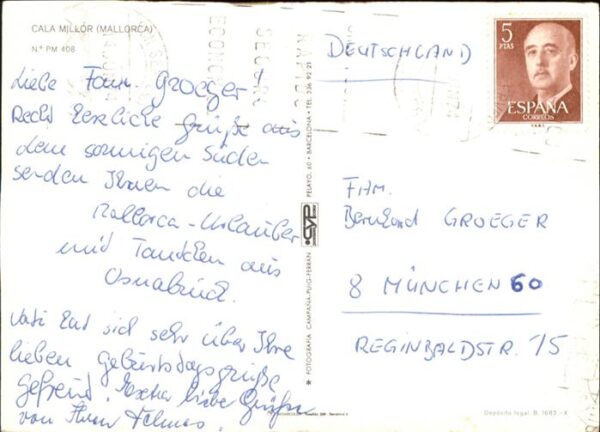 CALA MILLOR (MALLORCA)
N.º PM 408
Liebe Fam. Groeger!
Recht herzliche Grüße aus
dem sonnigen Süden
senden Ihnen die
Mallorca-Urlauber
mit Tantchen aus
Osnabrück.
Vati hat sich sehr über Ihre
lieben Geburtstagsgrüße
gefreut. Extra liebe Grüße
von Ihren
DEUTSCHLAND
5
PTAS
ESPAÑA
CORREOS
FHM.
Bernhard GROEGER
8 MÜNCHEN 60
REGINBALDSTR. 15
PELAYO, 60 • BARCELONA • TEL. 236 92 21
CYP
* FOTOGRAFIA CAMPAÑA-PUIG-FERRAN
Depósito legal B. 1682 - X